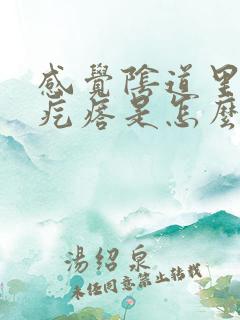 感覺陰道里
疙瘩是怎麼
湯紹泉
未经同意禁止转载